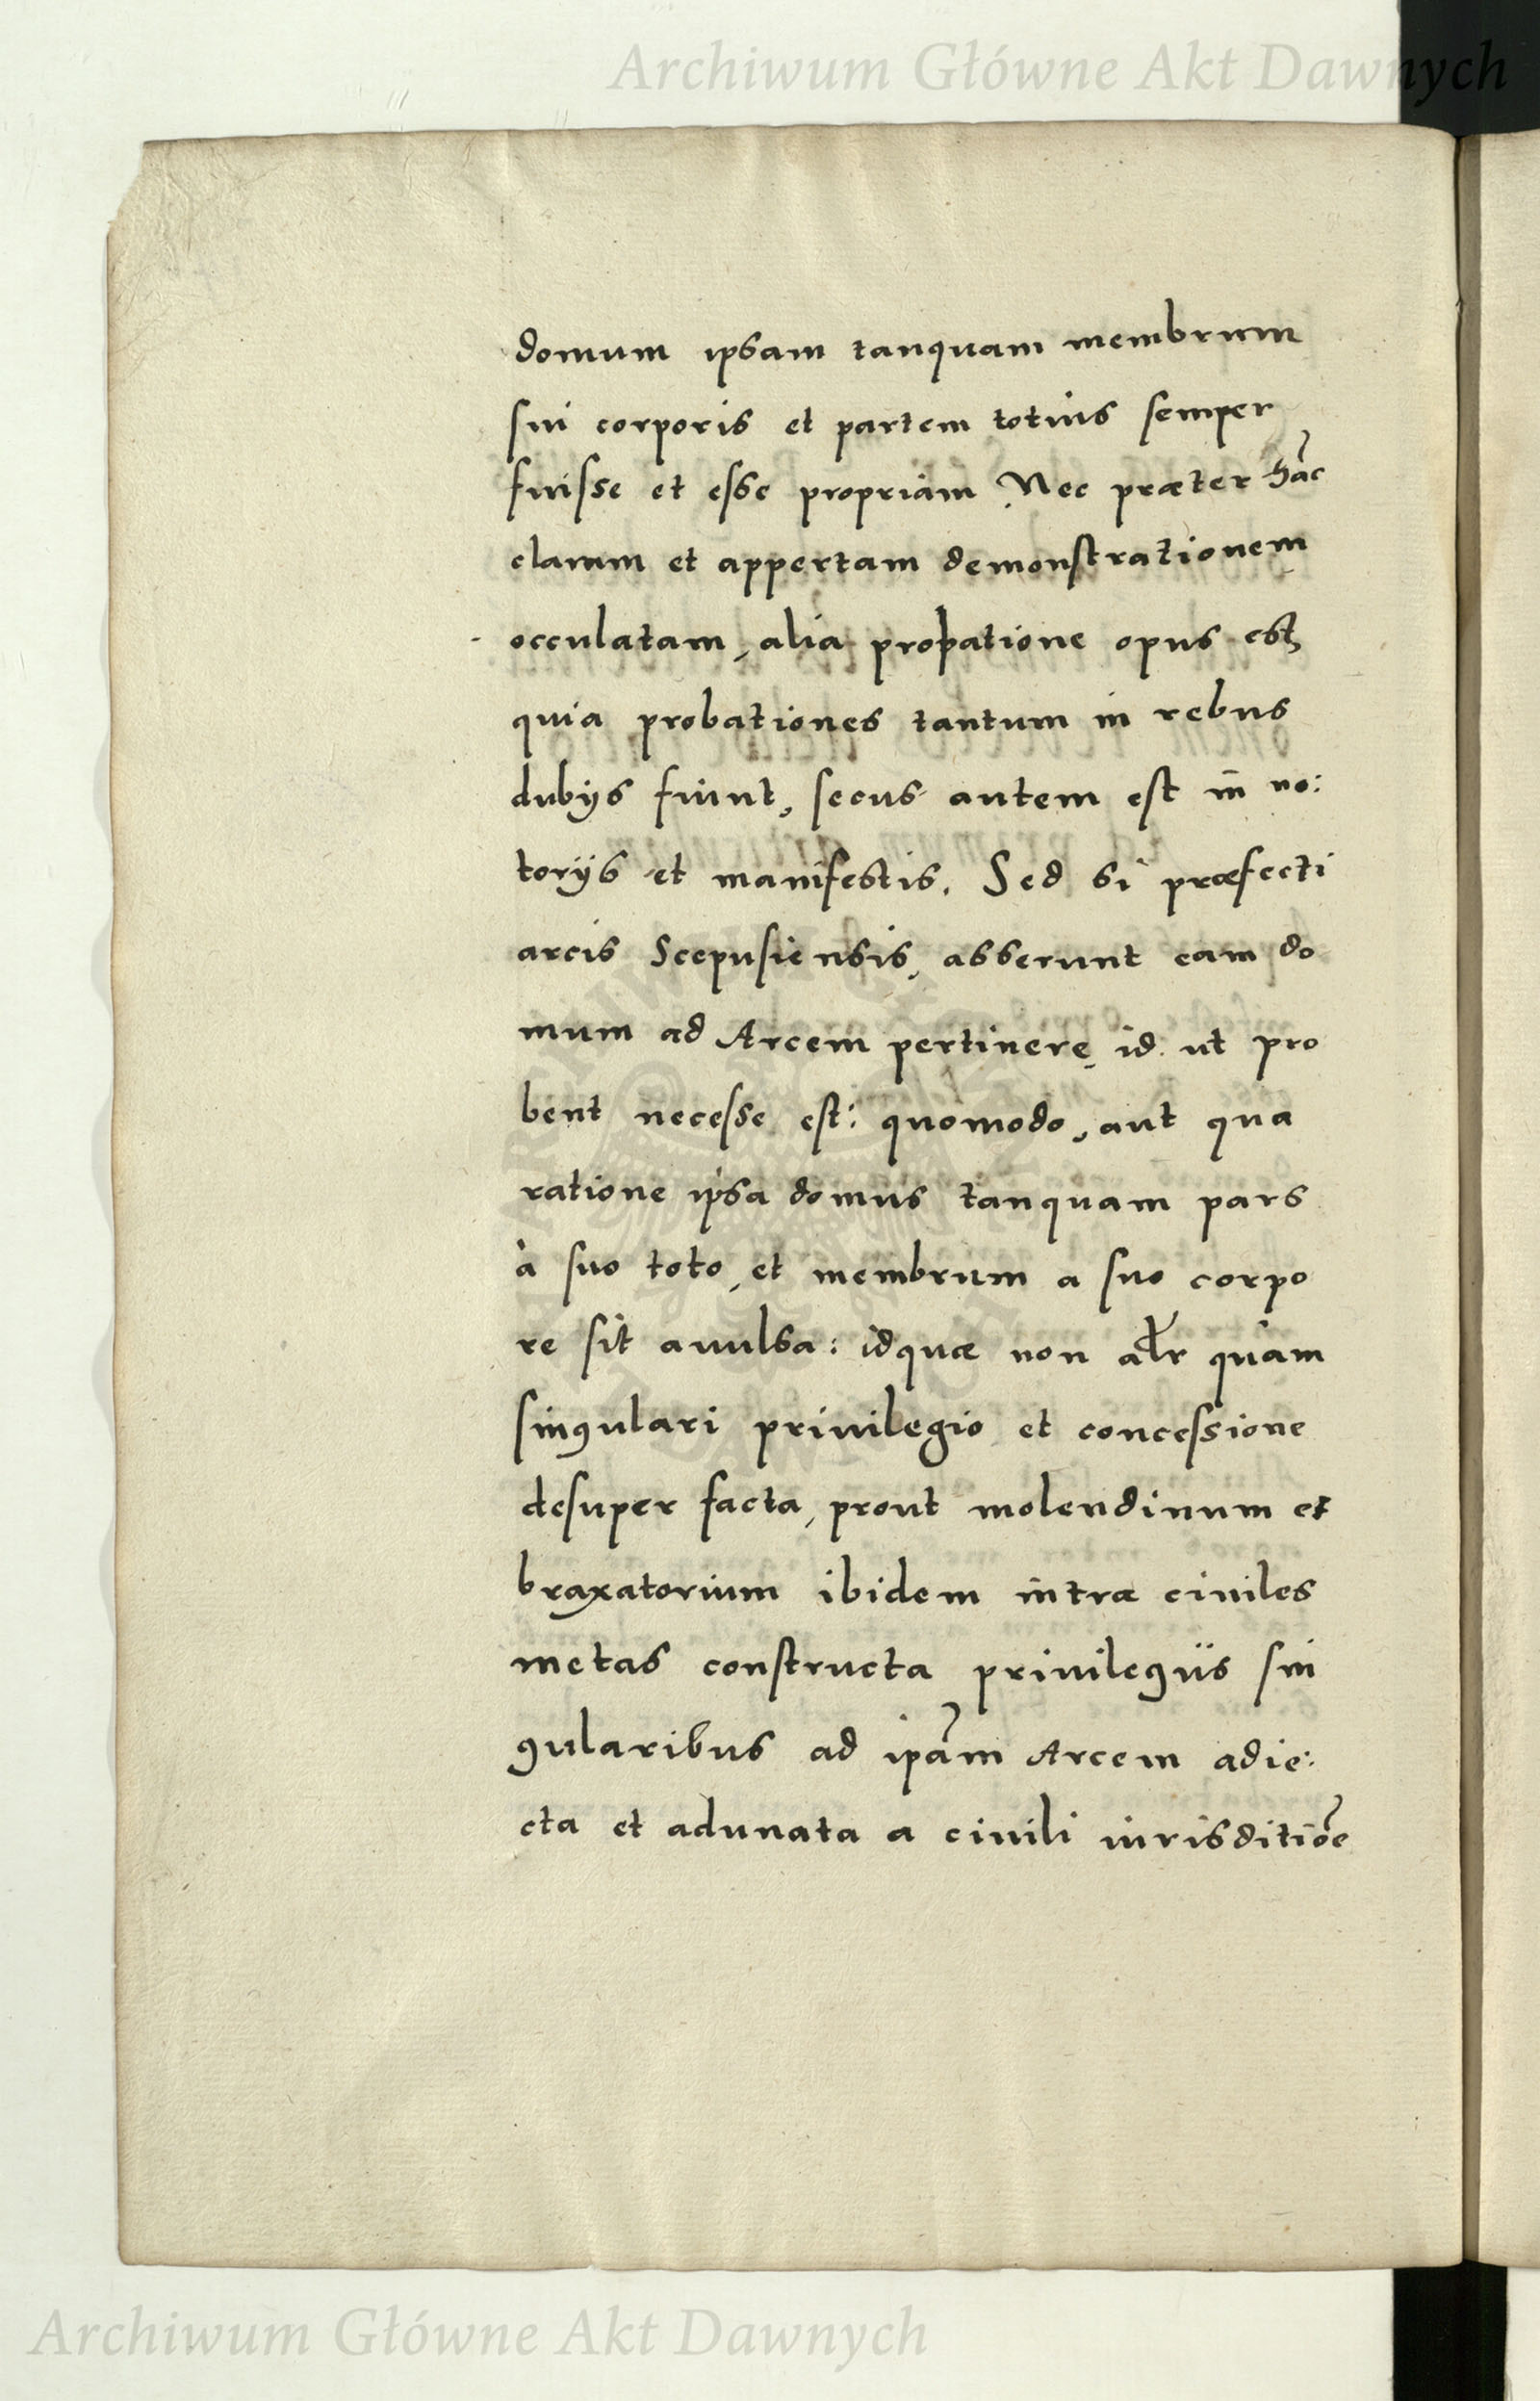 Archiwum Główne Akt Dawnych
domum ipsam tanquam membrum
sui corporis et partem totius semper
fuisse et esse propriam Nec præter hãc
claram et appertam demonstrationem
occulatam, alia probatione opus est,
quia probationes tantum in rebus
dubijs fiunt, secus autem est in no:
torijs et manifestis. Sed si præfecti
arcis Scepusiensis, asserunt eam do
mum ad Arcem pertinere, id ut pro
bent necesse est: quomodo, aut qua
ratione ipsa domus tanquam pars
à suo toto, et membrum a suo corpo
re sit auulsa: idquæ non alr̃ quàm
singulari priuilegio et concessione
desuper facta, prout molendinum et
braxatorium ibidem intra ciuiles
metas constructa priuilegiis sin
gularibus ad ipãm Arcem adie:
cta et adunata a ciuili iurisditiõe
Archiwum Główne Akt Dawnych